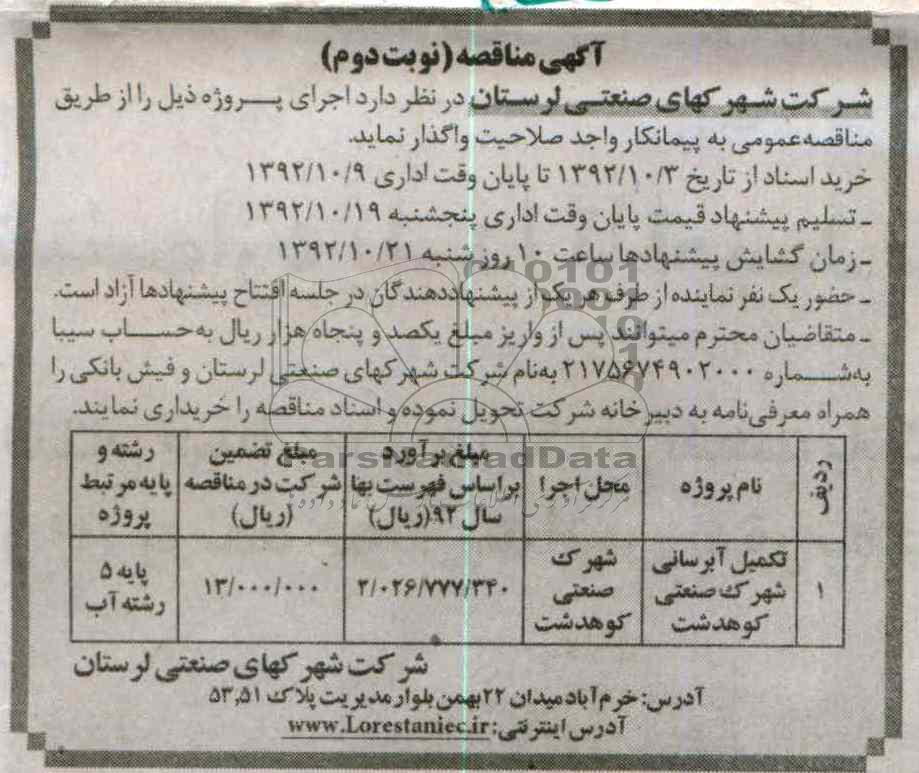 آگهی مناقصه (نوبت دوم)
شرکت شهرکهای صنعتی لرستان در نظر دارد اجرای پروژه ذیل را از طریق
مناقصه عمومی به پیمانکار واجد صلاحیت واگذار نماید.
خرید اسناد از تاریخ ۱۳۹۲/۱۰/۳ تا پایان وقت اداری ۱۳۹۲/۱۰/۹
ـ تسلیم پیشنهاد قیمت پایان وقت اداری پنجشنبه ۱۳۹۲/۱۰/۱۹
ـ زمان گشایش پیشنهادها ساعت ۱۰ روز شنبه ۱۳۹۲/۱۰/۲۱
ـ حضور یک نفر نماینده از طرف هر یک از پیشنهاددهندگان در جلسه افتتاح پیشنهادها آزاد است.
ـ متقاضیان محترم میتوانند پس از واریز مبلغ یکصد و پنجاه هزار ریال به حساب سیبا
به شماره ۲۱۷۵۶۷۴۹۰۲۰۰۰ به‌نام شرکت شهرکهای صنعتی لرستان و فیش بانکی را
همراه معرفی‌نامه به دبیرخانه شرکت تحویل نموده و اسناد مناقصه را خریداری نمایند.
ردیف
نام پروژه
محل اجرا
مبلغ برآورد
براساس فهرست بها
سال ۹۲(ریال)
مبلغ تضمین
شرکت در مناقصه
(ریال)
رشته و
پایه مرتبط
پروژه
۱
تکمیل آبرسانی
شهرک صنعتی
کوهدشت
شهرک
صنعتی
کوهدشت
۲/۰۲۶/۷۷۷/۳۴۰
۱۳/۰۰۰/۰۰۰
پایه ۵
رشته آب
شرکت شهرکهای صنعتی لرستان
آدرس: خرم‌آباد میدان ۲۲ بهمن بلوار مدیریت پلاک ۵۳,۵۱
آدرس اینترنتی: www.Lorestaniec.ir
ParsNamadData